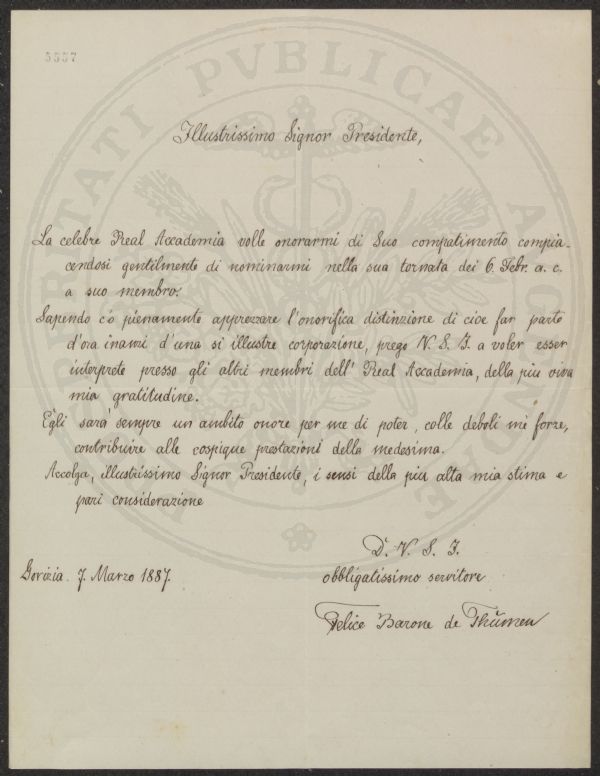 5557
Illustrissimo Signor Presidente,
La celebre Real Accademia volle onorarmi di Suo compatimento compia-
cendosi gentilmente di nominarmi nella sua tornata dei 6. Febr. a. c.
a suo membro.
Sapendo io pienamente apprezzare l'onorifica distinzione di cioe far parte
d'ora inanzi d'una si illustre corporazione, prego V. S. I. a voler esser
interprete presso gli altri membri dell' Real Accademia, della piu viva
mia gratitudine.
Egli sara' sempre un ambito onore per me di poter, colle deboli mie forze,
contribuire alle cospique prestazioni della medesima.
Accolga, illustrissimo Signor Presidente, i sensi della piu alta mia stima e
pari considerazione
D. V. S. I.
Gorizia. 7. Marzo 1887.
obbligatissimo servitore
Felice Barone de Thümen